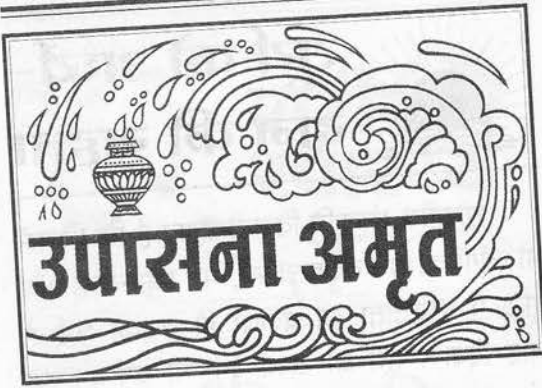 उपासना अमृत